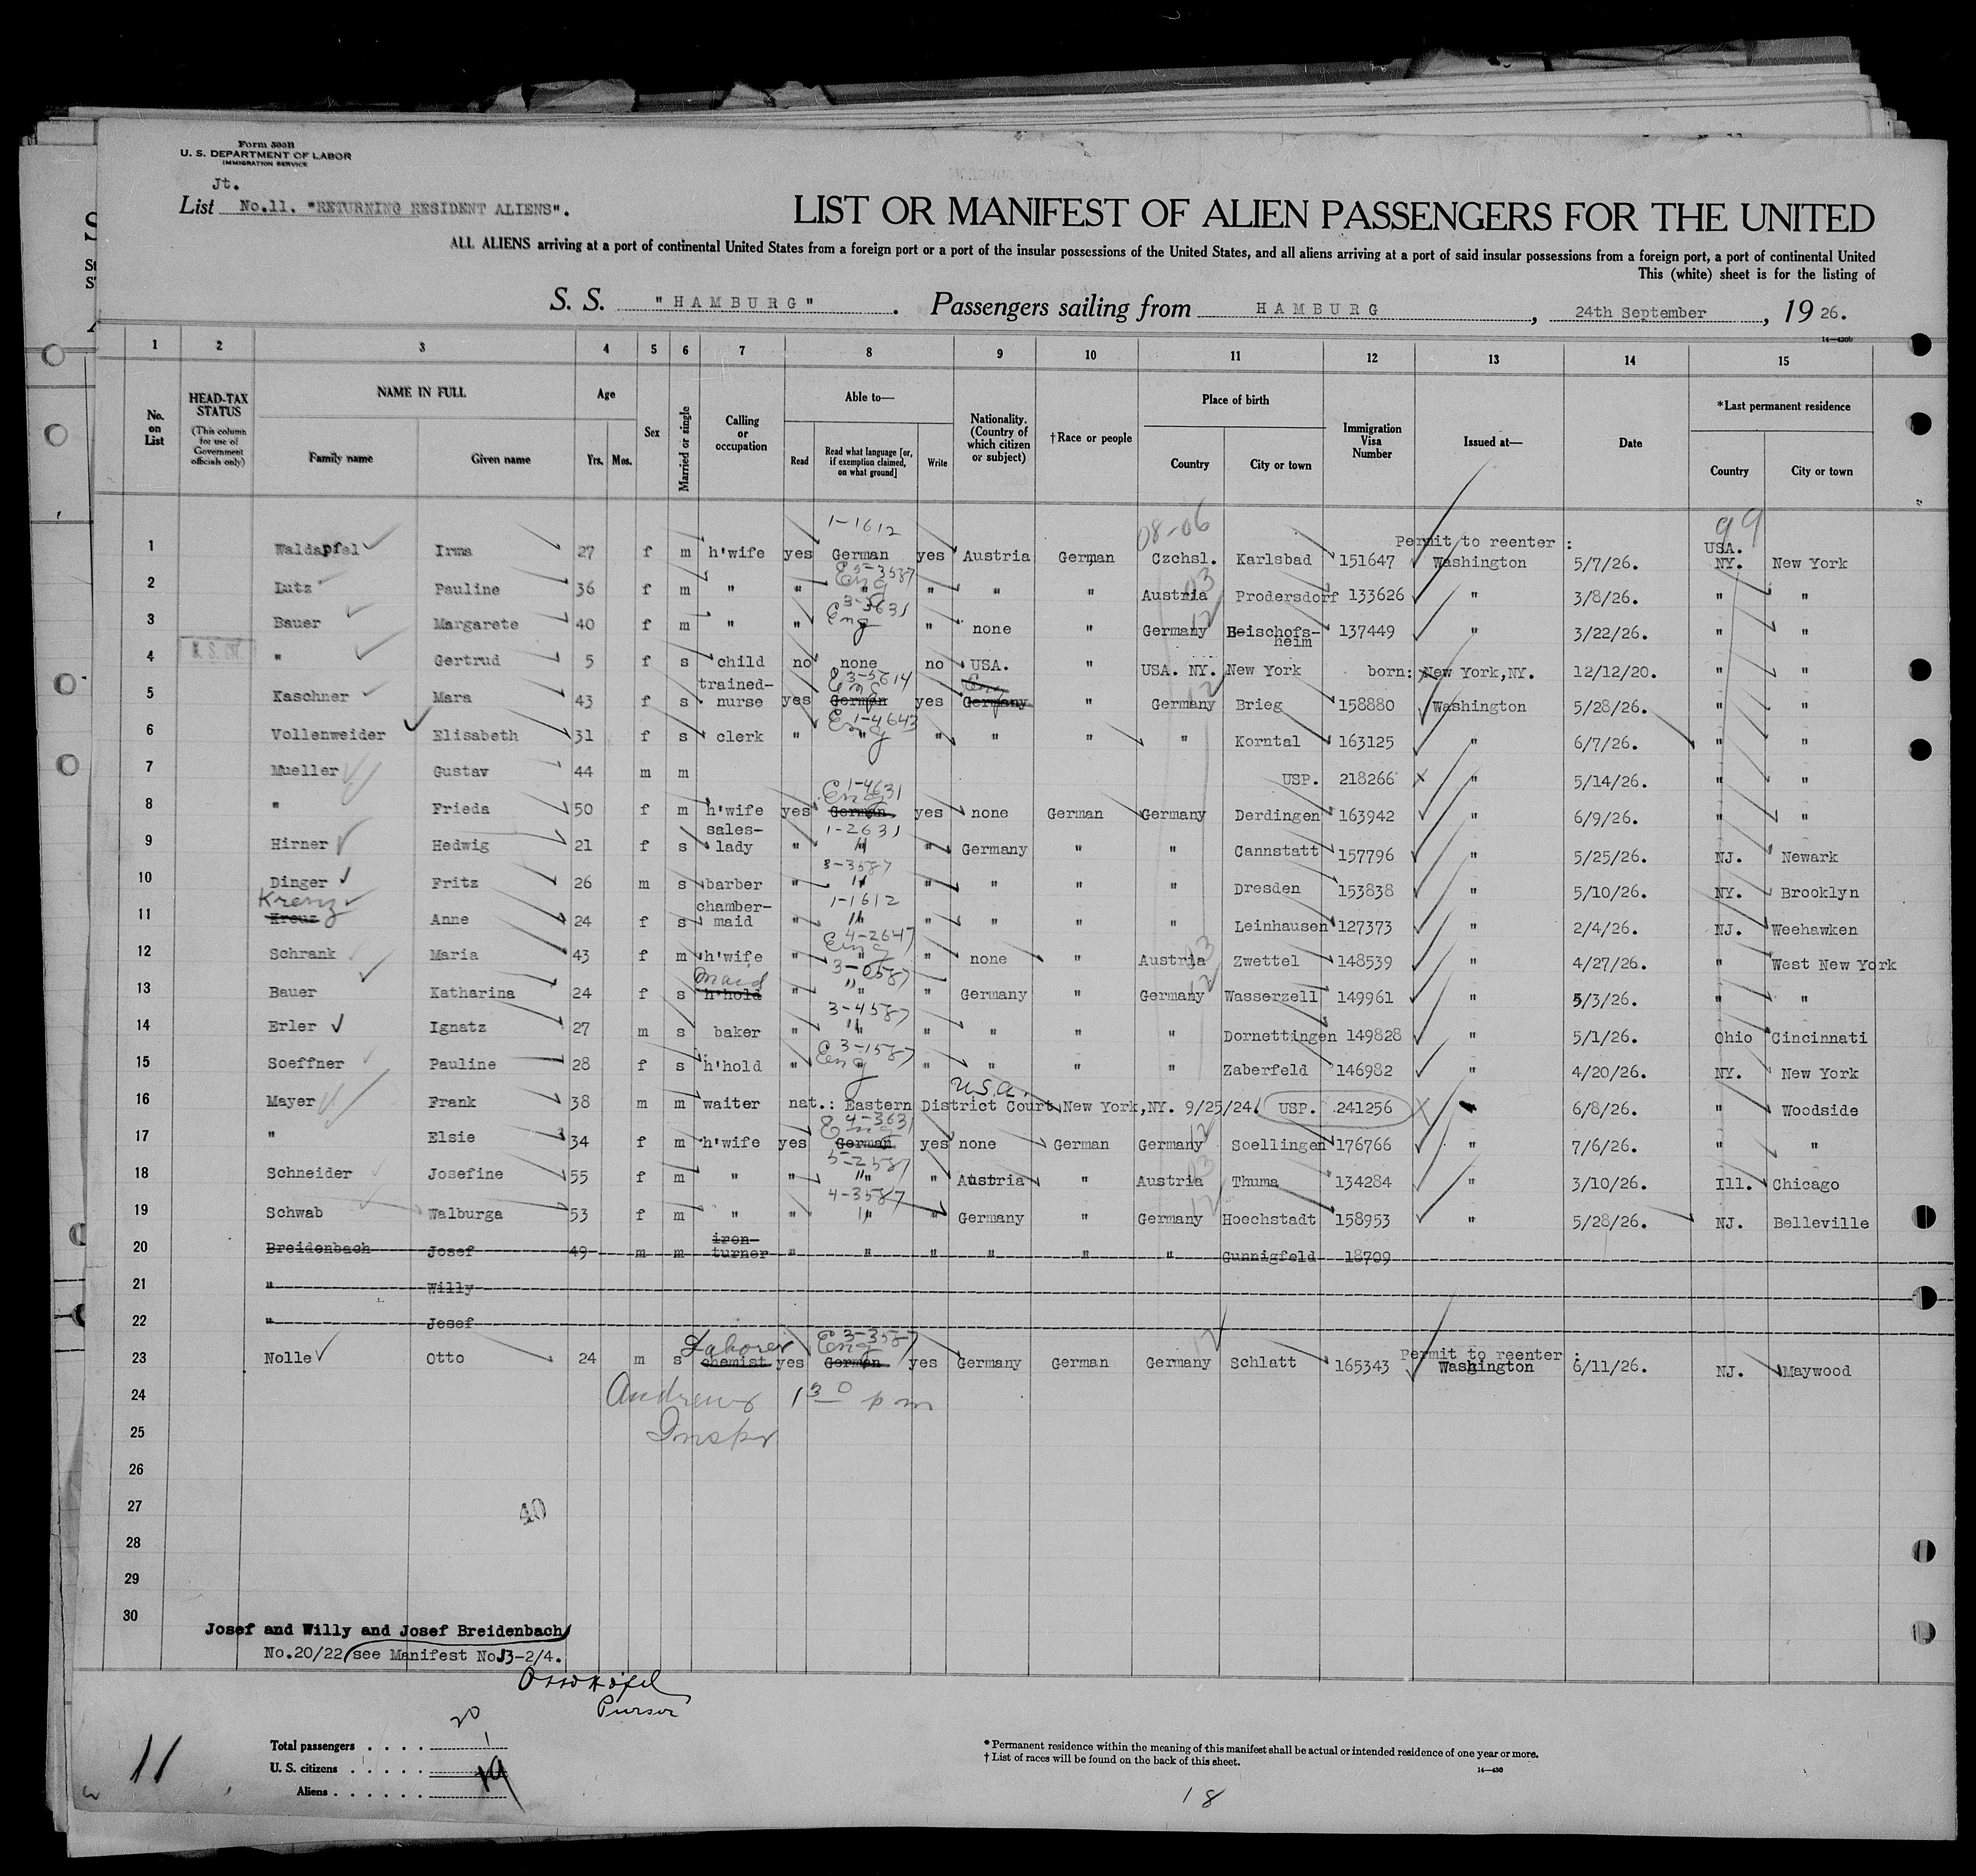 Form 500B
U. S. DEPARTMENT OF LABOR
IMMIGRATION SERVICE
Jt.
List No.11. "RETURNING RESIDENT ALIENS".
LIST OR MANIFEST OF ALIEN PASSENGERS FOR THE UNITED
ALL ALIENS arriving at a port of continental United States from a foreign port or a port of the insular possessions of the United States, and all aliens arriving at a port of said insular possessions from a foreign port, a port of continental United
This (white) sheet is for the listing of
S. S. "HAMBURG". Passengers sailing from HAMBURG, 24th September, 19 26.
14—430b
1 2 3 4 5 6 7 8 9 10 11 12 13 14 15
No. on List
HEAD-TAX STATUS (This column for use of Government officials only)
NAME IN FULL
Family name Given name
Age
Yrs. Mos.
Sex
Married or single
Calling or occupation
Able to—
Read Read what language [or, if exemption claimed, on what ground] Write
Nationality. (Country of which citizen or subject)
†Race or people
Place of birth
Country City or town
Immigration Visa Number
Issued at—
Date
*Last permanent residence
Country City or town
1-1612 08-06 99
Permit to reenter :
1 Waldapfel Irma 27 f m h'wife yes German yes Austria German Czchsl. Karlsbad 151647 Washington 5/7/26. USA. NY. New York
5-3587
2 Lutz Pauline 36 f m " " Eng " " " " Austria 03 Prodersdorf 133626 " 3/8/26. " "
3-3631
3 Bauer Margarete 40 f m " " Eng " none " Germany 12 Beischofs-heim 137449 " 3/22/26. " "
4 " Gertrud 5 f s child no none no USA. " USA. NY. New York born: New York,NY. 12/12/20. " "
3-5614
5 Kaschner Mara 43 f s trained-nurse yes Eng German yes Germany " Germany 12 Brieg 158880 Washington 5/28/26. " "
1-4643
6 Vollenweider Elisabeth 31 f s clerk " Eng " " " " Korntal 163125 " 6/7/26. " "
7 Mueller Gustav 44 m m USP. 218266 " 5/14/26. " "
1-4631
8 " Frieda 50 f m h'wife yes Eng German yes none German Germany Derdingen 163942 " 6/9/26. " "
1-2631
9 Hirner Hedwig 21 f s sales-lady " " " Germany " " Cannstatt 157796 " 5/25/26. NJ. Newark
3-3587
10 Dinger Fritz 26 m s barber " " " " " " Dresden 153838 " 5/10/26. NY. Brooklyn
Krenz 1-1612
11 Kreuz Anne 24 f s chamber-maid " " " " " " Leinhausen 127373 " 2/4/26. NJ. Weehawken
4-2647
12 Schrank Maria 43 f m h'wife " Eng " " none " Austria 03 Zwettel 148539 " 4/27/26. " West New York
3-0587
13 Bauer Katharina 24 f s Maid h'hold " " " Germany " Germany 12 Wasserzell 149961 " 5/3/26. " "
3-4587
14 Erler Ignatz 27 m s baker " " " " " " Dornettingen 149828 " 5/1/26. Ohio Cincinnati
3-1587
15 Soeffner Pauline 28 f s h'hold " Eng " " " " " Zaberfeld 146982 " 4/20/26. NY. New York
U.S.A.
16 Mayer Frank 38 m m waiter nat.: Eastern District Court New York,NY. 9/25/24. USP. 241256 " 6/8/26. " Woodside
4-3631
17 " Elsie 34 f m h'wife yes German yes none German Germany 12 Soellingen 176766 " 7/6/26. " "
5-2587
18 Schneider Josefine 55 f m " " " " Austria " Austria 03 Thuma 134284 " 3/10/26. Ill. Chicago
4-3587
19 Schwab Walburga 53 f m " " " " Germany " Germany 12 Hoechstadt 158953 " 5/28/26. NJ. Belleville
20 Breidenbach Josef 49 m m iron-turner " " " " " " Gunnigfeld 18709
21 " Willy
22 " Josef
3-3587
23 Nolle Otto 24 m s Laborer chemist yes Eng German yes Germany German Germany 12 Schlatt 165343 Permit to reenter : Washington 6/11/26. NJ. Maywood
24 Andrews 1 30 p m
25 Inspr
26
27 40
28
29
30
Josef and Willy and Josef Breidenbach
No.20/22 see Manifest No.13-2/4.
Purser
20
Total passengers 1
U. S. citizens 19
Aliens
11
* Permanent residence within the meaning of this manifest shall be actual or intended residence of one year or more.
† List of races will be found on the back of this sheet.
14—430
18